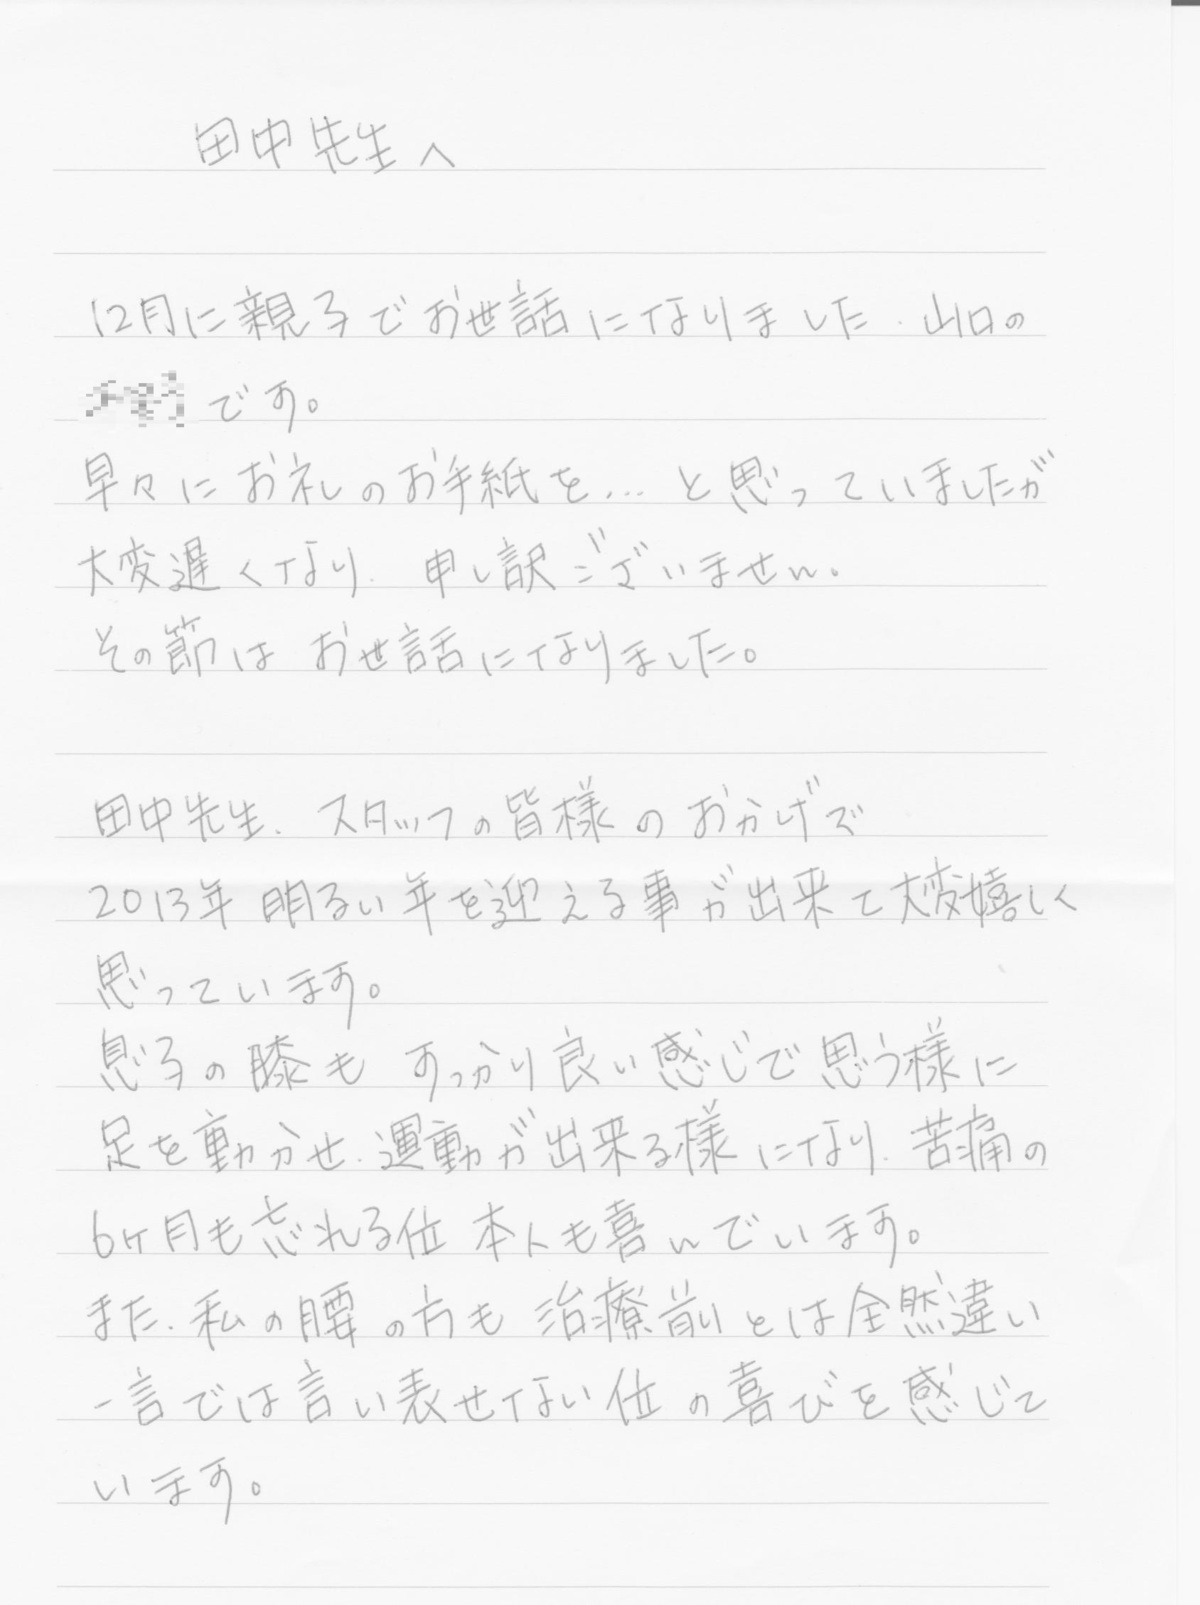 田中先生へ
12月に親子でお世話になりました、山口の
です。
早々にお礼のお手紙を…と思っていましたが
大変遅くなり、申し訳ございません。
その節はお世話になりました。
田中先生、スタッフの皆様のおかげで
2013年明るい年を迎える事が出来て大変嬉しく
思っています。
息子の膝もすっかり良い感じで思う様に
足を動かせ、運動が出来る様になり、苦痛の
6ヶ月も忘れる位本人も喜んでいます。
また、私の腰の方も治療前とは全然違い
一言では言い表せない位の喜びを感じて
います。